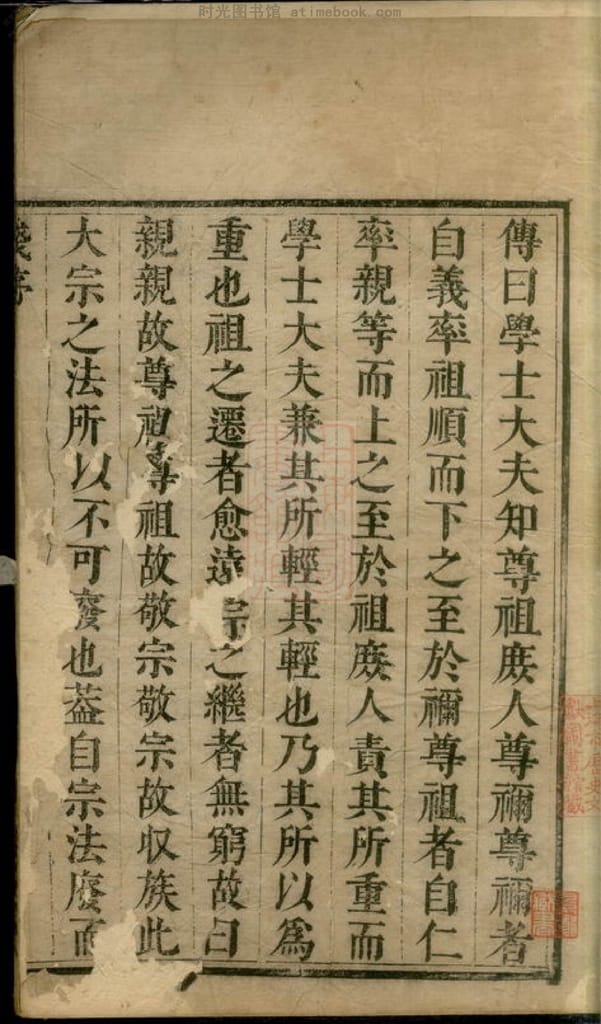 时光图书馆 atimebook.com
傳曰學士大夫知尊祖庻人尊禰尊禰者
自義率祖順而下之至於禰尊祖者自仁
率親等而上之至於祖庻人責其所重而
學士大夫兼其所輕其輕也乃其所以爲
重也祖之遷者愈遠宗之繼者無窮故曰
親親故尊祖尊祖故敬宗敬宗故収族此
大宗之法所以不可廢也葢自宗法廢而